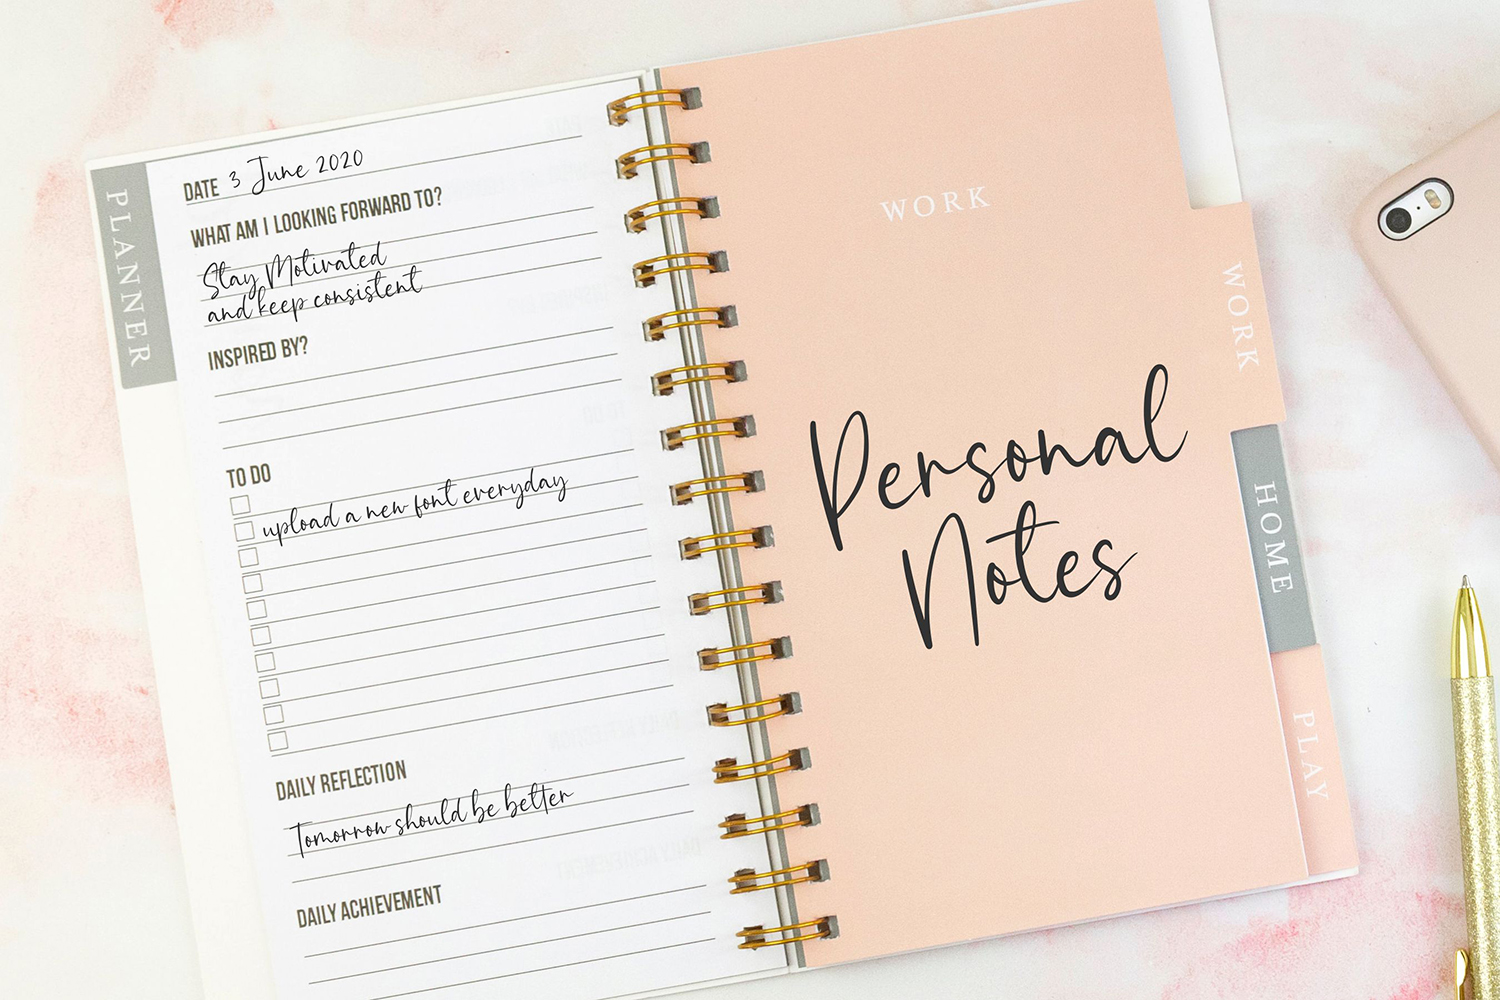 PLANNER
DATE 3 June 2020
WHAT AM I LOOKING FORWARD TO?
Stay Motivated
and keep consistent
INSPIRED BY?
TO DO
upload a new font everyday
DAILY REFLECTION
Tomorrow should be better
DAILY ACHIEVEMENT
WORK
Personal
Notes
WORK
HOME
PLAY